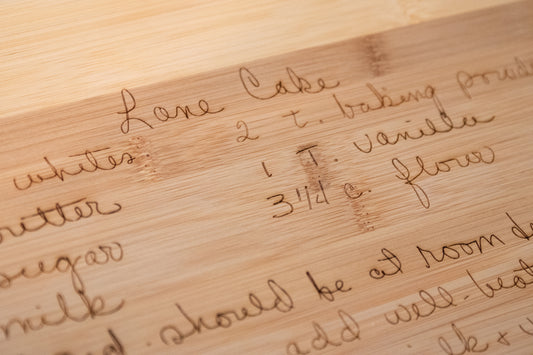 Lane Cake
whites 2 t. baking powder
butter 1 T. vanilla
sugar 3 1/4 c. flour
milk should be at room
add well. beat
+